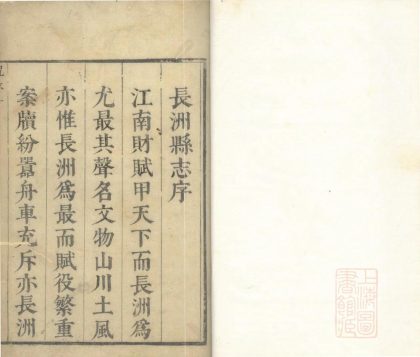 長洲縣志序
江南財賦甲天下而長洲爲
尤最其聲名文物山川土風
亦惟長洲爲最而賦役繁重
案牘紛囂舟車充斥亦長洲
上海圖
書館藏